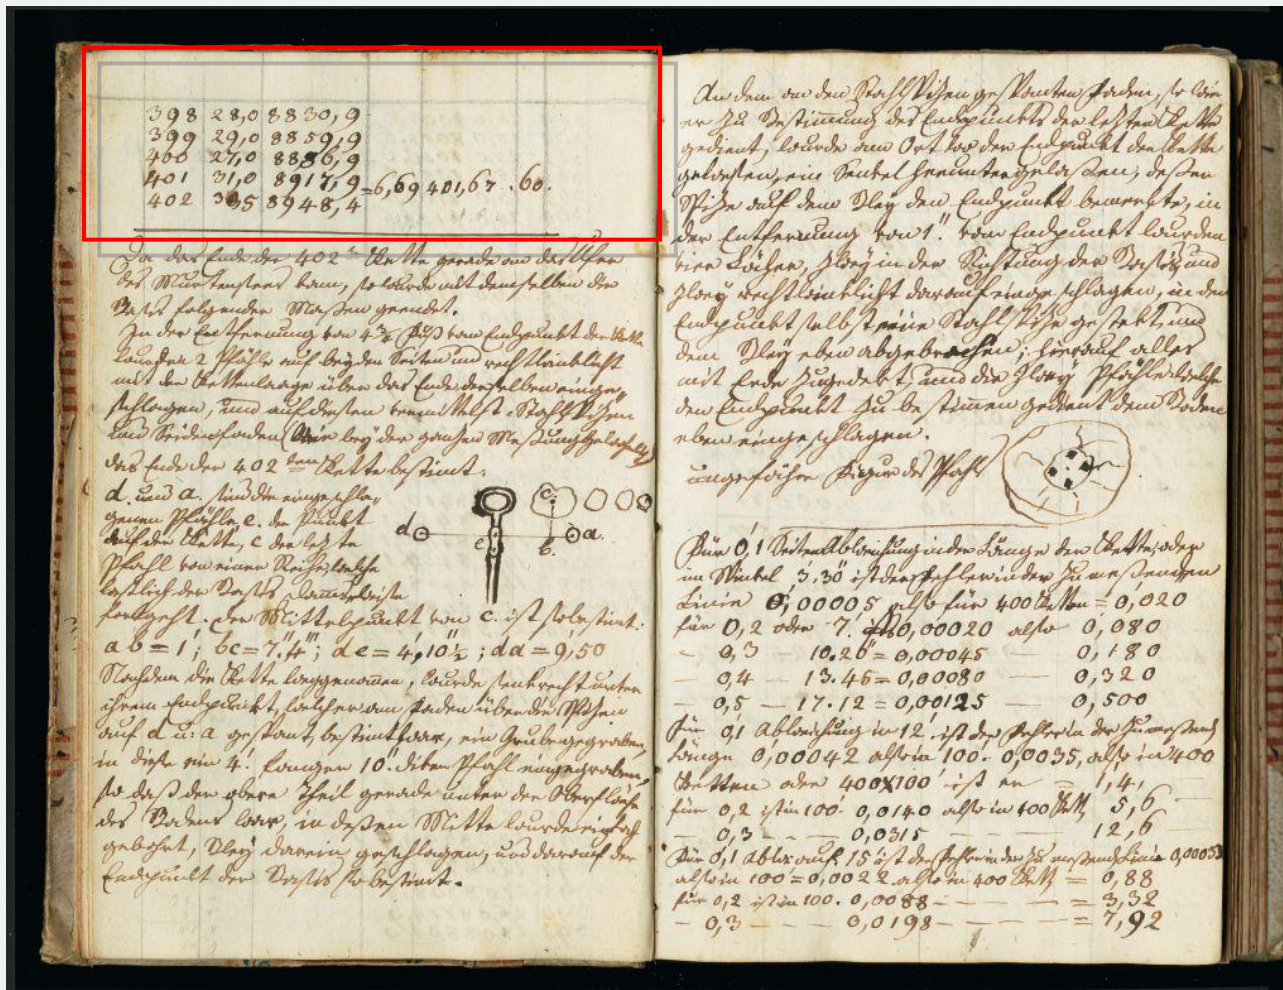 398 28,0 8830,9
399 29,0 8859,9
400 27,0 8886,9
401 31,0 8917,9 = 6,69 401,67 . 60.
402 30,5 8948,4
Da das Ende der 402 Kette gerade an das Ufer
des Murtensees kam, so wurde mit demselben die
Basis folgender Massen geendet.
In der Entfernung von 4¾ Fuß vom Endpunkt der Kette
wurden 2 Pfähle auf beyden Seiten und rechtwinklicht
mit der Kettenlaage über das Ende derselben einge-
schlagen, und auf diesen vermittelst Stahlspizen
und Seidenfaden (wie bey der ganzen Messung
das Ende der 402 ten Kette bestimt.
d. und a. sind die eingeschla-
genen Pfähle, e. der Punkt
auf der Kette, c der lezte
Pfahl von einer Reihe, welche
östlich der Basis
fortgeht. Der Mittelpunkt von c. ist so bestimt:
ab = 1'; bc = 7."4'''; de = 4,'10"½; da = 9,'50
Nachdem die Kette weggenomen, wurde senkrecht unter
ihrem Endpunkt, welcher am Faden über die Spizen
auf d u: a gespant, bestimt war, ein Grube gegraben,
in diese ein 4'. langer 10" diken Pfahl eingegraben,
so daß der obere Theil gerade unter der Oberfläche
des Bodens war, in dessen Mitte wurde ein
gebohrt, Bley darein geschlagen, und darauf der
Endpunkt der Basis so bestimt.
d e c. b. a.
An dem an den Stahlspizen gespanten Faden, so wie
er zu Bestimmung des Endpunkts der lezten Kette
gedient, wurde am Ort wo der Endpunkt der Kette
gewesen, ein Senkel heruntergelassen, dessen
Spize auf dem Bley den Endpunkt bemerkte, in
der Entfernung von 1" vom Endpunkt wurden
vier Löcher, zwey in der Richtung der Basis und
zwey rechtwinklicht darauf eingeschlagen, in den
Endpunkt selbst eine Stahlspize gestekt, und
dem Bley eben abgebrochen; hierauf alles
mit Erde zugedekt, und die zwey Pfähle welche
den Endpunkt zu bestimen gedient dem Boden
eben eingeschlagen.
ungefähre Figur des Pfahls
Für 0,1 Seiten Abweichung in der Länge der Kette, oder
im Winkel 3'.30" ist der Fehler in der zu messenden
Linie 0,00005 also für 400 Ketten = 0,020
für 0,2 oder 7'. 0,00020 also 0,080
- 0,3 - 10.26" = 0,00045 - 0,180
- 0,4 - 13.46 = 0,00080 - 0,320
- 0,5 - 17.12 = 0,00125 - 0,500
für 0,1 Abweichung in 12' ist der Fehler in der zu messend
Länge 0,00042 also in 100'. 0,0035, also in 400
Ketten oder 400x100' ist er = 1,4,
für 0,2 ist in 100' 0,0140 also in 400 Kett 5,6
- 0,3 - - - 0,0315 - - - 12,6
Für 0,1 Abw: auf 15' ist der Fehler in der zu messend Linie
also in 100' = 0,0022 also in 400 Kett = 0,88
für 0,2 ist in 100. 0,0088 - - - = 3,32
- 0,3 - - - 0,0198 - - - = 7,92